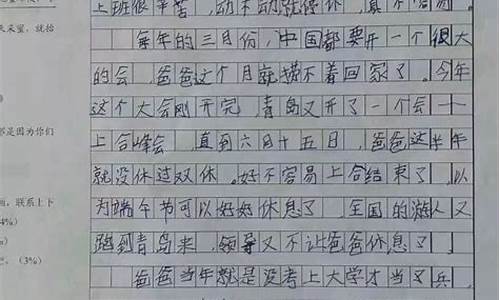 上班很辛苦，动不动就停休，真不容易。
每年的三月份，中国都要开一个很大
的会，爸爸这个月就捞不着回家了。今年
这个大会刚开完，青岛又开了一个会——
上合峰会，直到六月十五日，爸爸这半年
就没休过双休。好不容易上合结束了，以
为端午节可以好好休息了，全国的游人又
跑到青岛来，领导又不让爸爸休息了。
爸爸当年就是没考上大学才当了兵，
天来望，就抬
都是因为你们
，联系上下
4%）
。（3%）